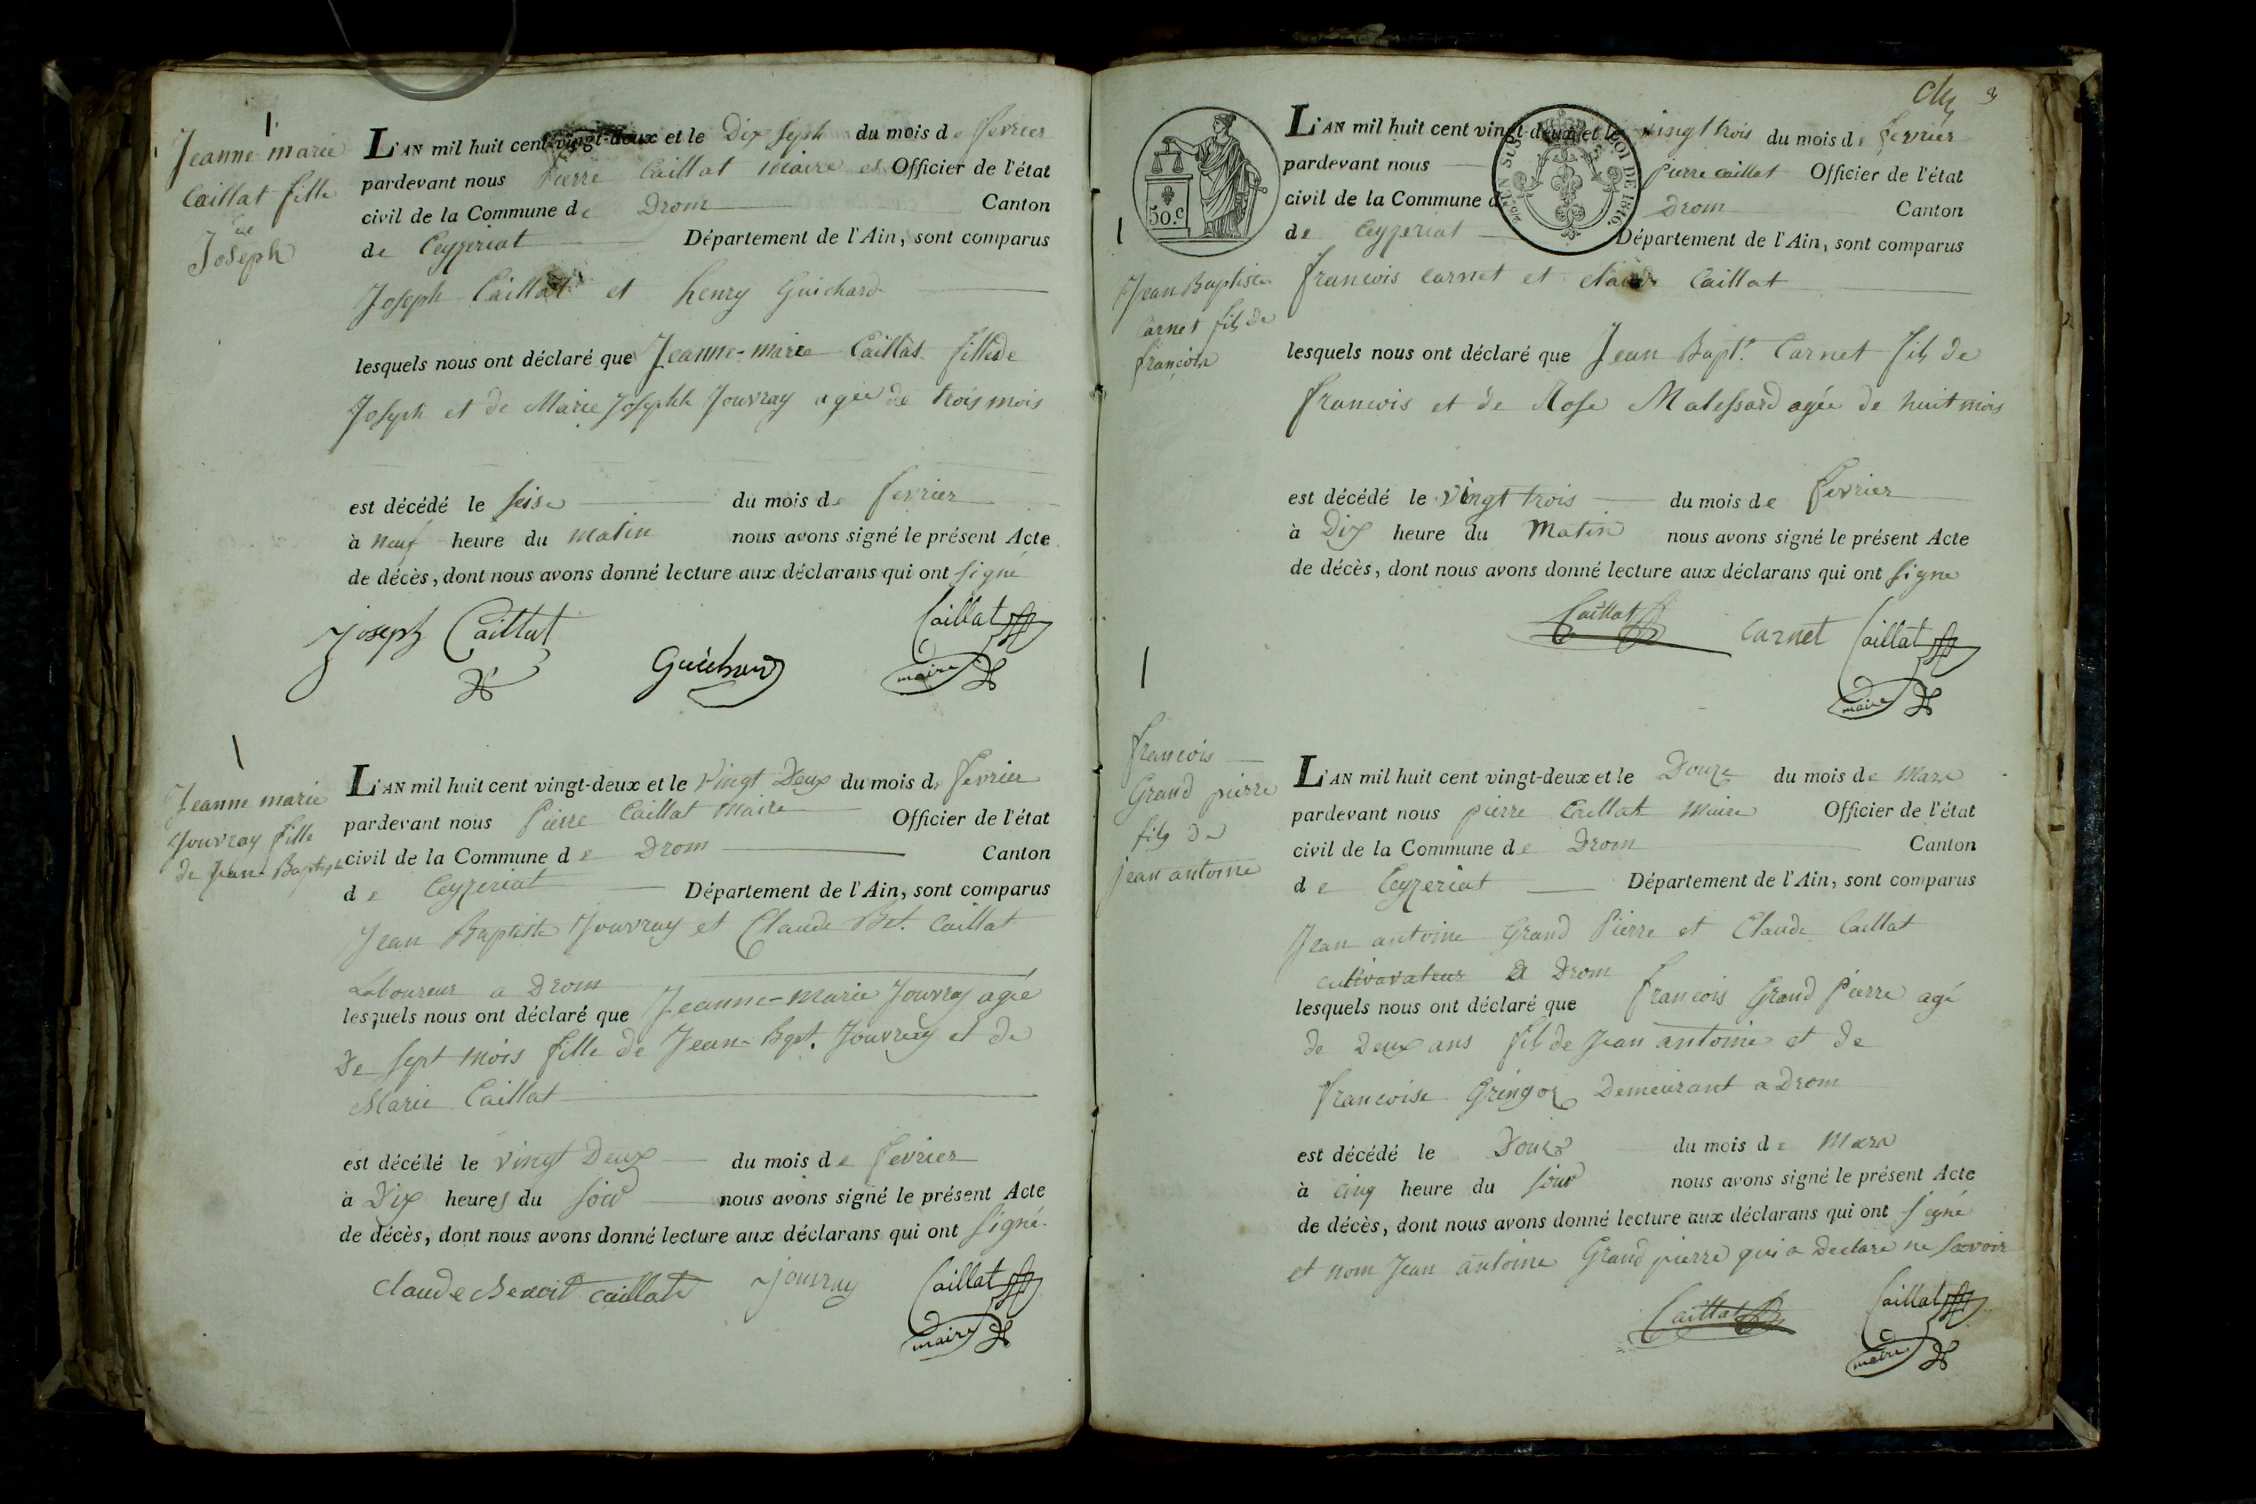 Jeanne marie
Caillat fille
de
Joseph
L'AN mil huit cent vingt-deux et le Dix Sept du mois de fevrier
pardevant nous Pierre Caillat Maire et Officier de l'état
civil de la Commune de Drom Canton
de Ceyzeriat Département de l'Ain, sont comparus
Joseph Caillat et henry Guichard
lesquels nous ont déclaré que Jeanne-marie Caillat fille de
Joseph et de Marie Josephte Jouvray agée de trois mois
est décédé le seise du mois de fevrier
à neuf heure du matin nous avons signé le présent Acte
de décès, dont nous avons donné lecture aux déclarans qui ont signé
Joseph Caillat Guichard Caillat
maire
Jeanne marie
Jouvray fille
de Jean-Baptiste
L'AN mil huit cent vingt-deux et le Vingt Deux du mois de fevrier
pardevant nous Pierre Caillat Maire Officier de l'état
civil de la Commune de Drom Canton
de Ceyzeriat Département de l'Ain, sont comparus
Jean Baptiste Jouvray et Claude Bt. Caillat
Laboureur a Drom
lesquels nous ont déclaré que Jeanne-Marie Jouvray agée
De sept mois fille de Jean-Bapt. Jouvray et de
Marie Caillat
est décédé le vingt Deux du mois de fevrier
à Dix heures du soir nous avons signé le présent Acte
de décès, dont nous avons donné lecture aux déclarans qui ont signé
claude Benoit caillat Jouvray Caillat
maire
3
50.c
LOI DE 1816.
L'AN mil huit cent vingt-deux et le vingt trois du mois de fevrier
pardevant nous Pierre caillat Officier de l'état
civil de la Commune de Drom Canton
de Ceyzeriat Département de l'Ain, sont comparus
Jean Baptiste
Carnet fils de
françois
francois carnet et claude Caillat
lesquels nous ont déclaré que Jean Bapt. Carnet fils de
francois et de Rose Malessard agée de huit mois
est décédé le vingt trois du mois de fevrier
à Dix heure du Matin nous avons signé le présent Acte
de décès, dont nous avons donné lecture aux déclarans qui ont signe
Caillat Carnet Caillat
maire
francois
Grand pierre
fils de
jean antoine
L'AN mil huit cent vingt-deux et le Douze du mois de Mars
pardevant nous pierre Caillat Maire Officier de l'état
civil de la Commune de Drom Canton
de Ceyzeriat Département de l'Ain, sont comparus
Jean antoine Grand Pierre et Claude Caillat
cultivavateur a Drom
lesquels nous ont déclaré que francois Grand Pierre agé
de Deux ans fils de Jean antoine et de
francoise Gringoz Demeurant a Drom
est décédé le Douze du mois de Mars
à cinq heure du soir nous avons signé le présent Acte
de décès, dont nous avons donné lecture aux déclarans qui ont signé
et nom Jean antoine Grand pierre qui a Declaré ne savoir
Caillat Caillat
maire